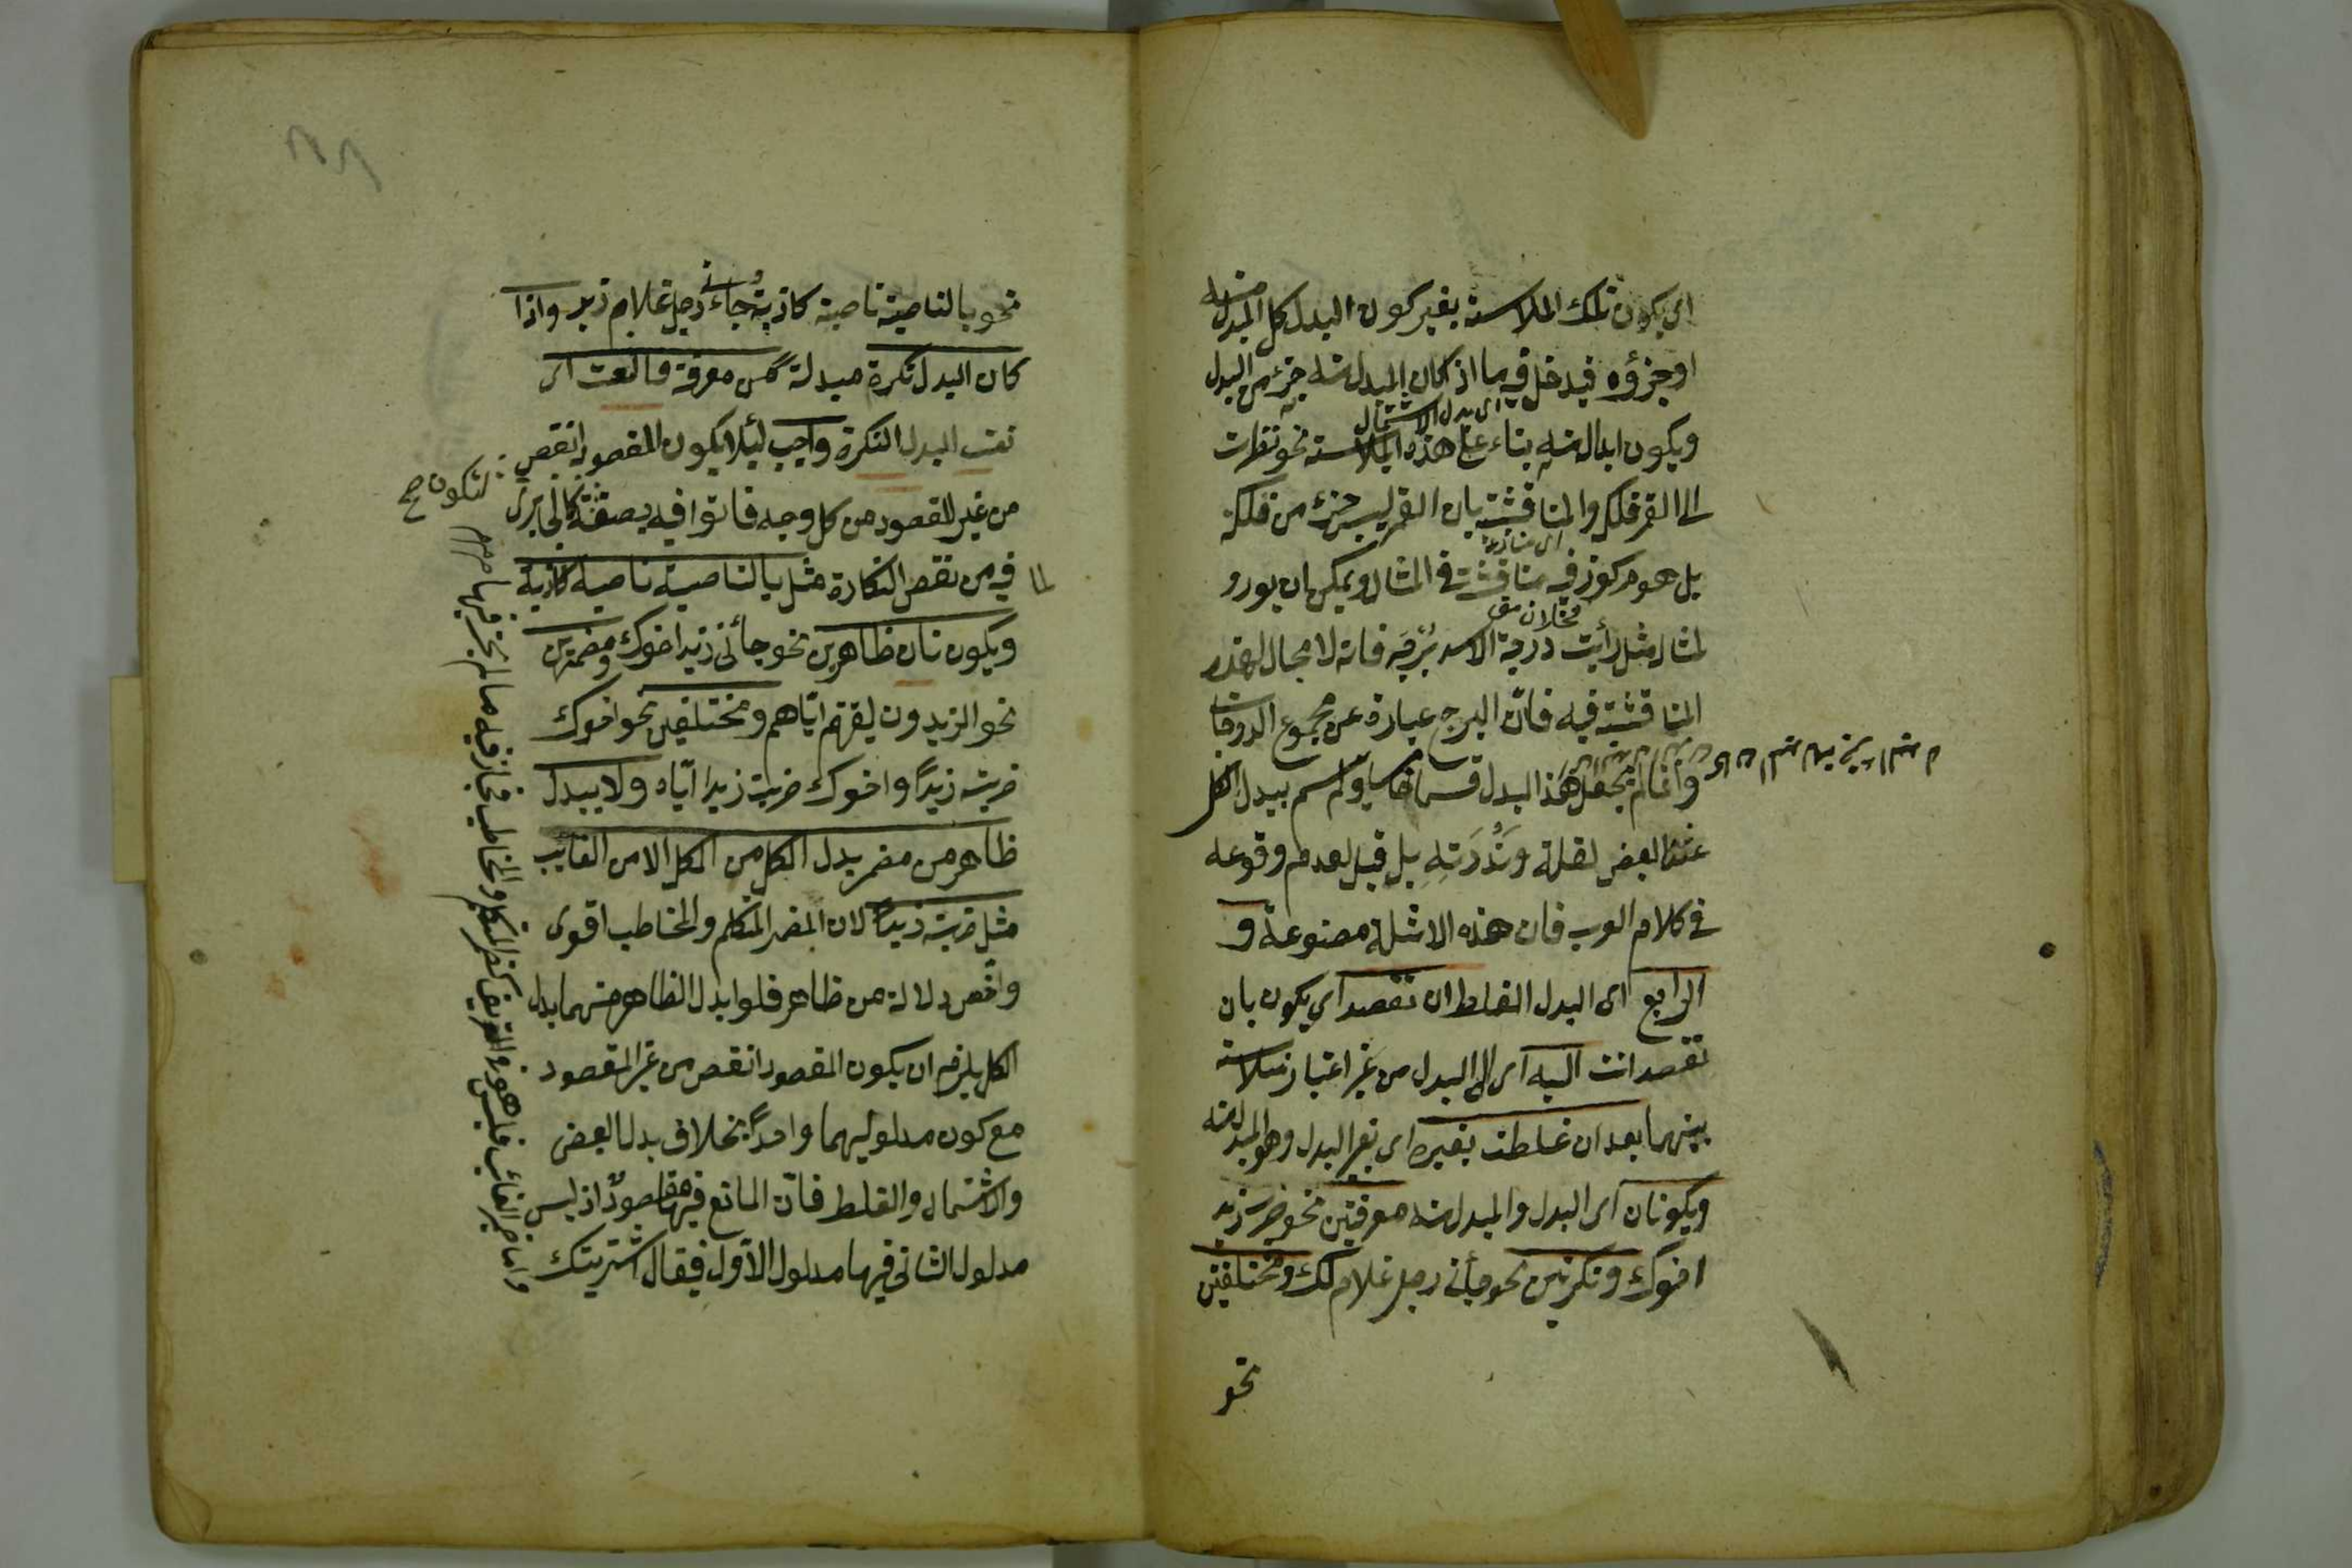 اي يكون تلك الملابسة بغير كون البدل كل المبدل منه
او جزؤه فيدخل فيه ما اذ كان المبدل منه جزء من البدل
ويكون ابداله منه بناء على هذه الملابسة نحو نظرت
اى بدل الاشتمال
الى القمر فلكه والمناقشة بان القمر ليس جزء من فلكه
بل هو مركوز فيه مناقشة في المثال ويمكن ان يورد
اى منازعة
لمثال مثل رأيت درجة الاسد برجه فانه لا مجال لهذه
المناقشة فيه فان البرج عبارة عن مجموع الدرجات
وانما لم يجعل هذا البدل قسما خامسا ولم يسم ببدل الكل
عن البعض لقلته وندرته بل قيل لعدم وقوعه
في كلام العرب فان هذه الامثلة مصنوعة و
الرابع اى البدل الغلط ان تقصد اي يكون بان
تقصد انت اليه اى الى البدل من غير اعتبار ملابسة
بينهما بعد ان غلطت بغيره اى بغير البدل وهو المبدل منه
ويكونان اى البدل والمبدل منه معرفتين نحو ضرب زيد
اخوك ونكرتين نحو جأني رجل غلام لك ومختلفين
نحو
نحو بالناصية ناصية كاذبة وجاءني رجل غلام زيد واذا
كان البدل نكرة مبدلة من معرفة فالنعت اى
نعت البدل النكرة واجب لئلا يكون المقصود انقص
من غير المقصود من كل وجه فاتوا فيه بصفة كالجابر
لتكون صح
لما فيه من نقص النكارة مثل بالناصية ناصية كاذبة
ويكونان ظاهرين نحو جأنى زيد اخوك ومضمرين
نحو الزيدون لقيتهم اياهم ومختلفين نحو اخوك
ضربته زيدا واخوك ضربت زيدا اياه ولا يبدل
ظاهر من مضمر بدل الكل من الكل الا من الغايب
مثل ضربته زيدا لان المضمر المتكلم والمخاطب اقوى
واخص دلالة من ظاهر فلو ابدل الظاهر منهما بدل
الكل يلزم ان يكون المقصود انقص من غير المقصود
مع كون مدلوليهما واحدا بخلاف بدل البعض
والاشتمال والغلط فان المانع فيها مفقود اذ ليس
مدلول الثانى فيها مدلول الاول فيقال اشتريتك